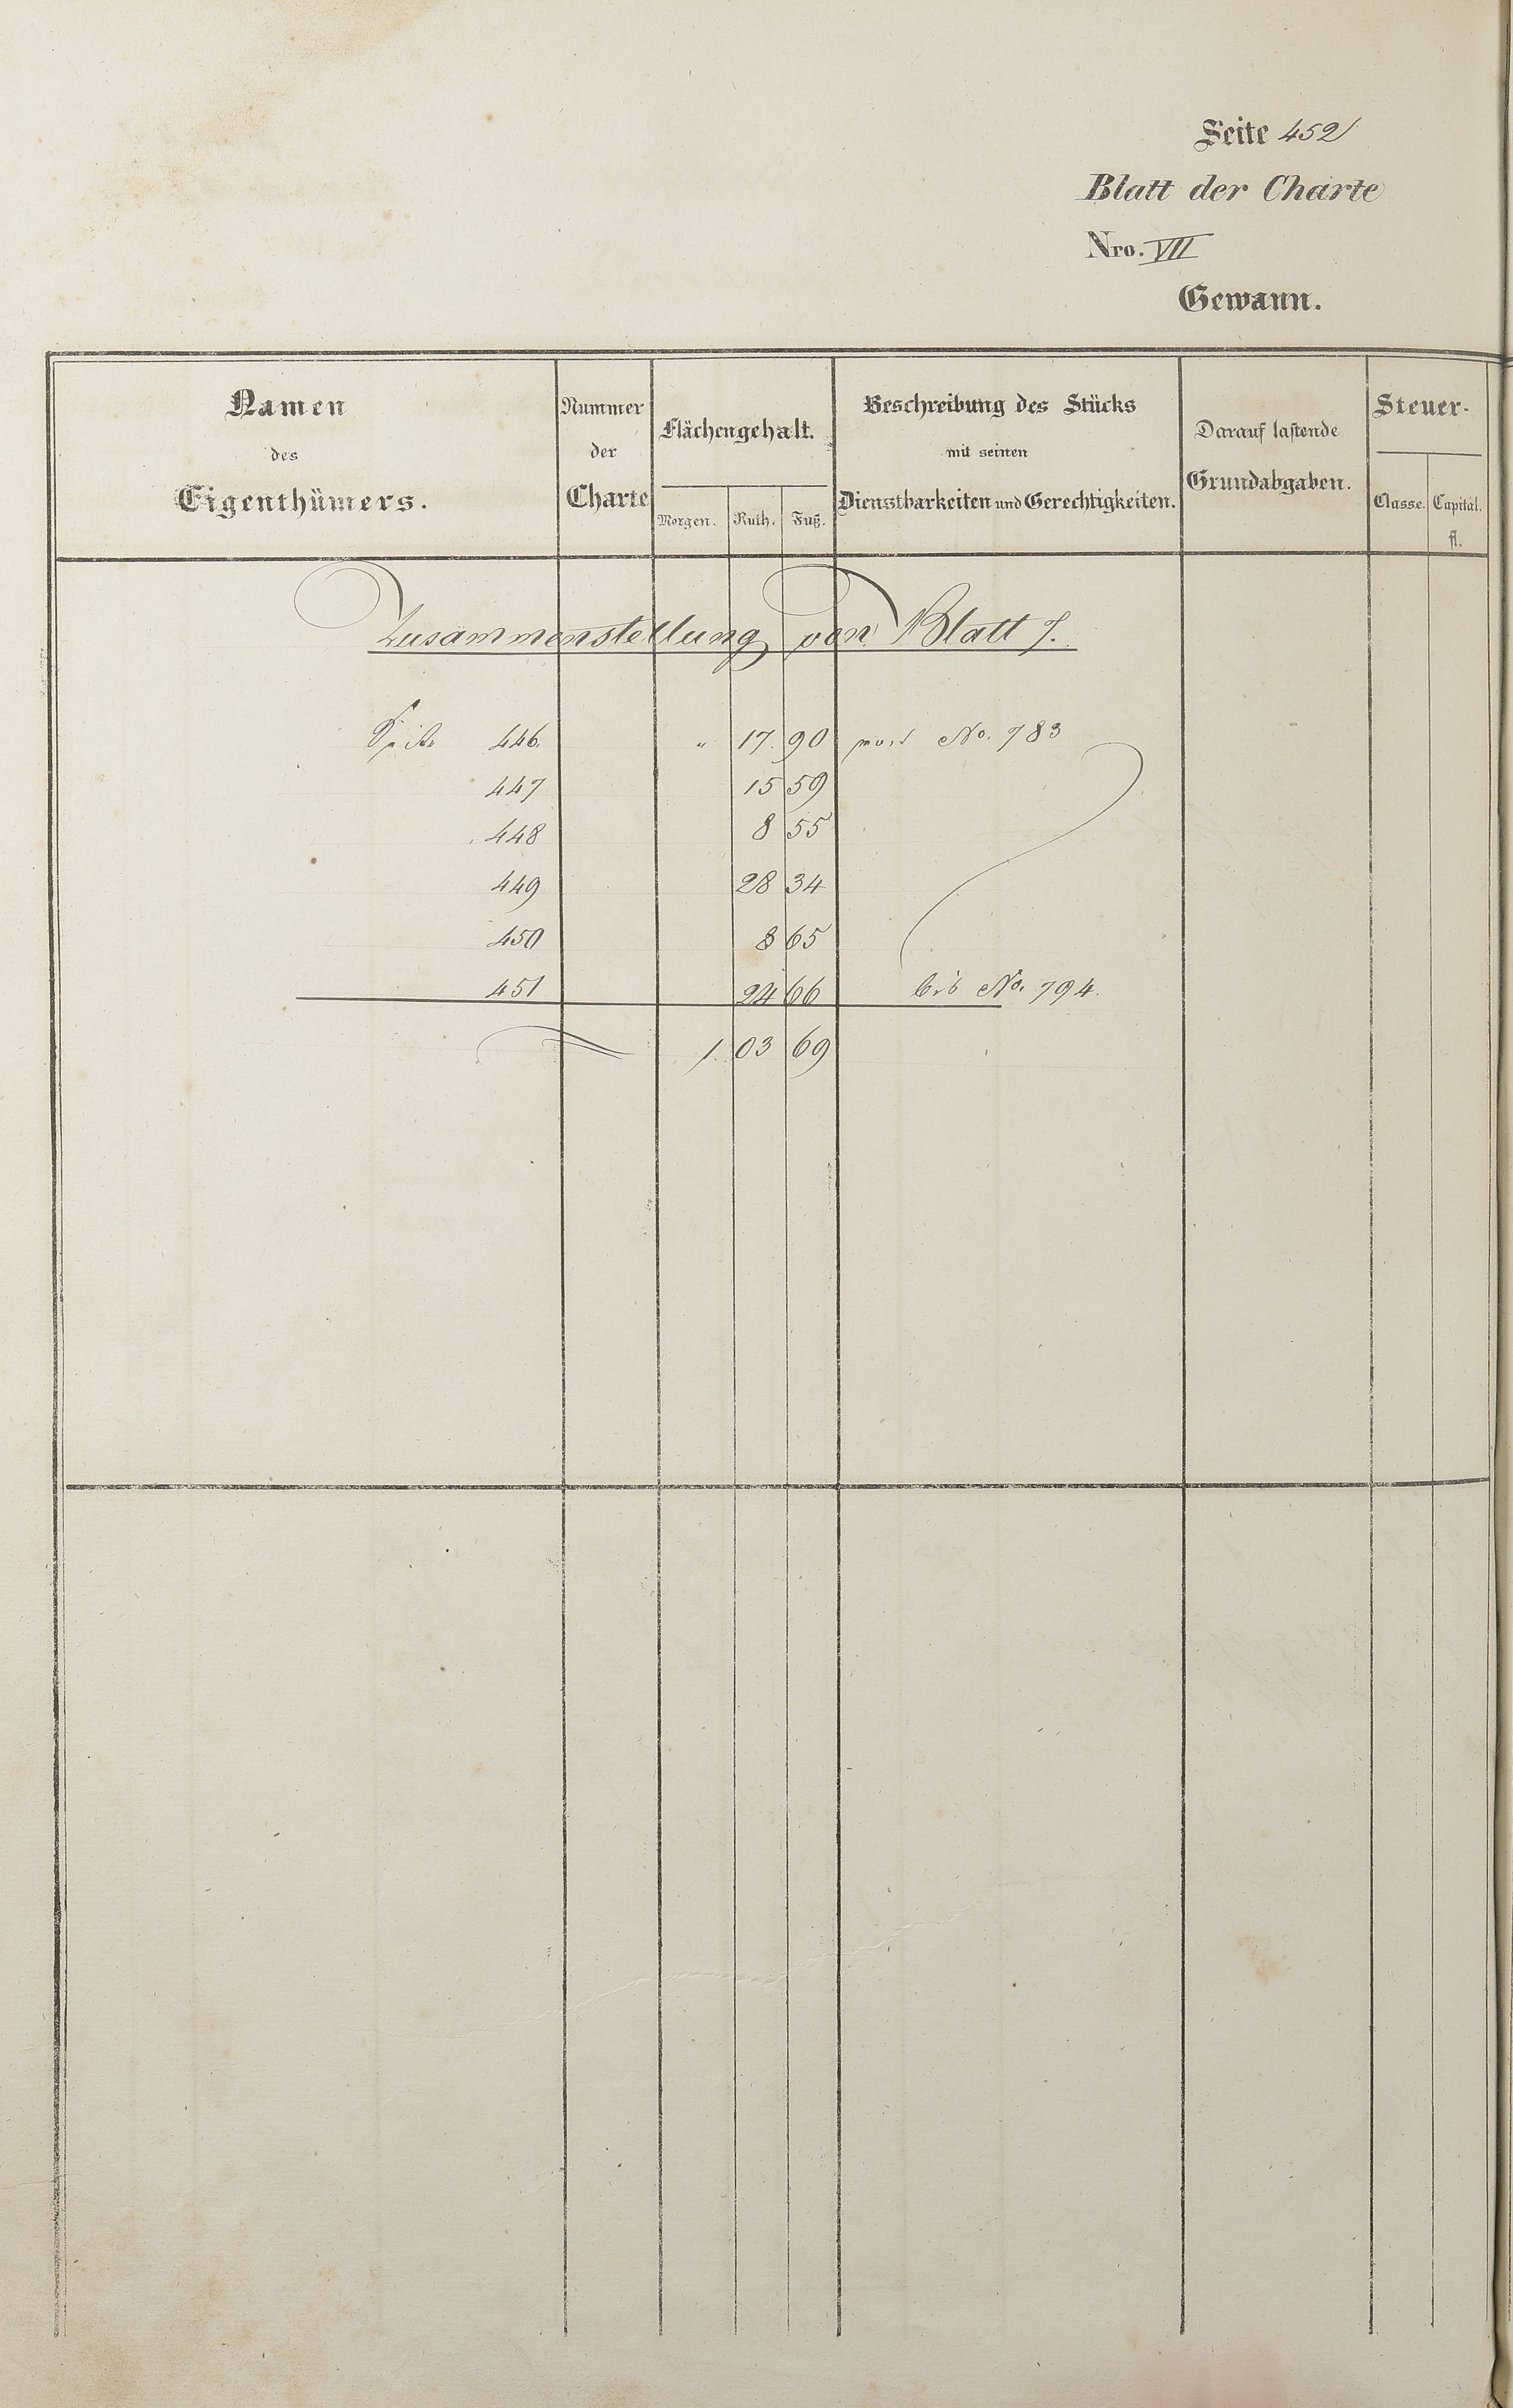 Seite 452
Blatt der Charte
Nro. VII
Gewann.
Namen des Eigenthümers.
Nummer der Charte
Flächengehalt.
Morgen. Ruth. Fuß.
Beschreibung des Stücks mit seinen Dienstbarkeiten und Gerechtigkeiten.
Darauf lastende Grundabgaben.
Steuer-
Classe. Capital. fl.
Zusammenstellung von Blatt 7.
Seite 446. " 17. 90 von No. 783
447 15 59
448 8 55
449 28 34
450 8 65
451 24 66 bis No. 794.
1. 03 69